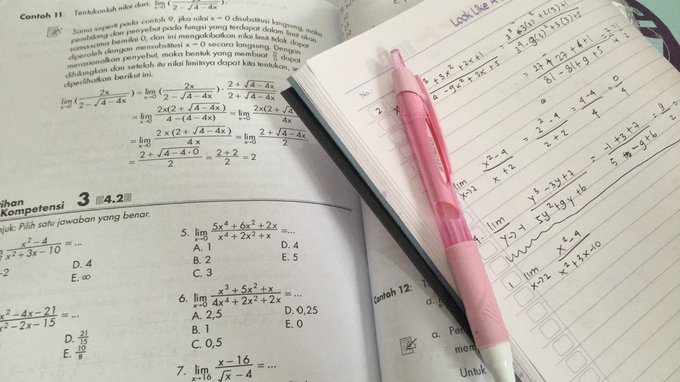 Contoh 11: Tentukanlah nilai dari: lim x→0 (2x / 2 − √4 − 4x)
Sama seperti pada contoh 9, jika nilai x = 0 disubstitusi langsung, maka
pembilang dan penyebut pada fungsi yang terdapat dalam limit akan
sama-sama bernilai 0, dan ini mengakibatkan nilai limit tidak dapat
diperoleh dengan mensubstitusi x = 0 secara langsung. Dengan
merasionalkan penyebut, maka bentuk yang membuat 0/0 dapat
dihilangkan dan setelah itu nilai limitnya dapat kita tentukan, se
diperlihatkan berikut ini.
lim x→0 (2x / 2 − √4 − 4x) = lim x→0 (2x / 2 − √4 − 4x) · 2 + √4 − 4x / 2 + √4 − 4x
= lim x→0 2x(2 + √4 − 4x) / 4 − (4 − 4x) = lim x→0 2x(2 + √4 / 4x
= lim x→0 2x(2 + √4 − 4x) / 4x = lim x→0 2 + √4 − 4x / 2
= 2 + √4 − 4·0 / 2 = 2 + 2 / 2 = 2
ihan
Kompetensi 3 4.2
juk: Pilih satu jawaban yang benar.
x² − 4 / x² + 3x − 10 = ...
-2
D. 4
E. ∞
x² − 4x − 21 / x² − 2x − 15 = ...
D. 21/15
E. 10/8
5. lim x→0 5x⁴ + 6x² + 2x / x⁴ + 2x² + x = ...
A. 1 D. 4
B. 2 E. 5
C. 3
6. lim x→0 x³ + 5x² + x / 4x⁴ + 2x² + 2x = ...
A. 2,5 D. 0,25
B. 1 E. 0
C. 0,5
7. lim x→16 x − 16 / √x − 4 = ...
Contoh 12:
a.
a. Per
men
Untuk
Look Like A
No.
3 + 3x² + 2x + 1
− 9x² + 3x + 5
lim x→2 x² − 4 / x + 2 = 2² − 4 / 2 + 2 = 4 − 4 / 4 = 0 / 4
lim y→ −1 y³ − 3y + 7 / 5y² + 9y + 6 = −1 + 3 + 7 / 5 − 9 + 6 = 9
1. lim x→2 x² − 4 / x² + 3x − 10